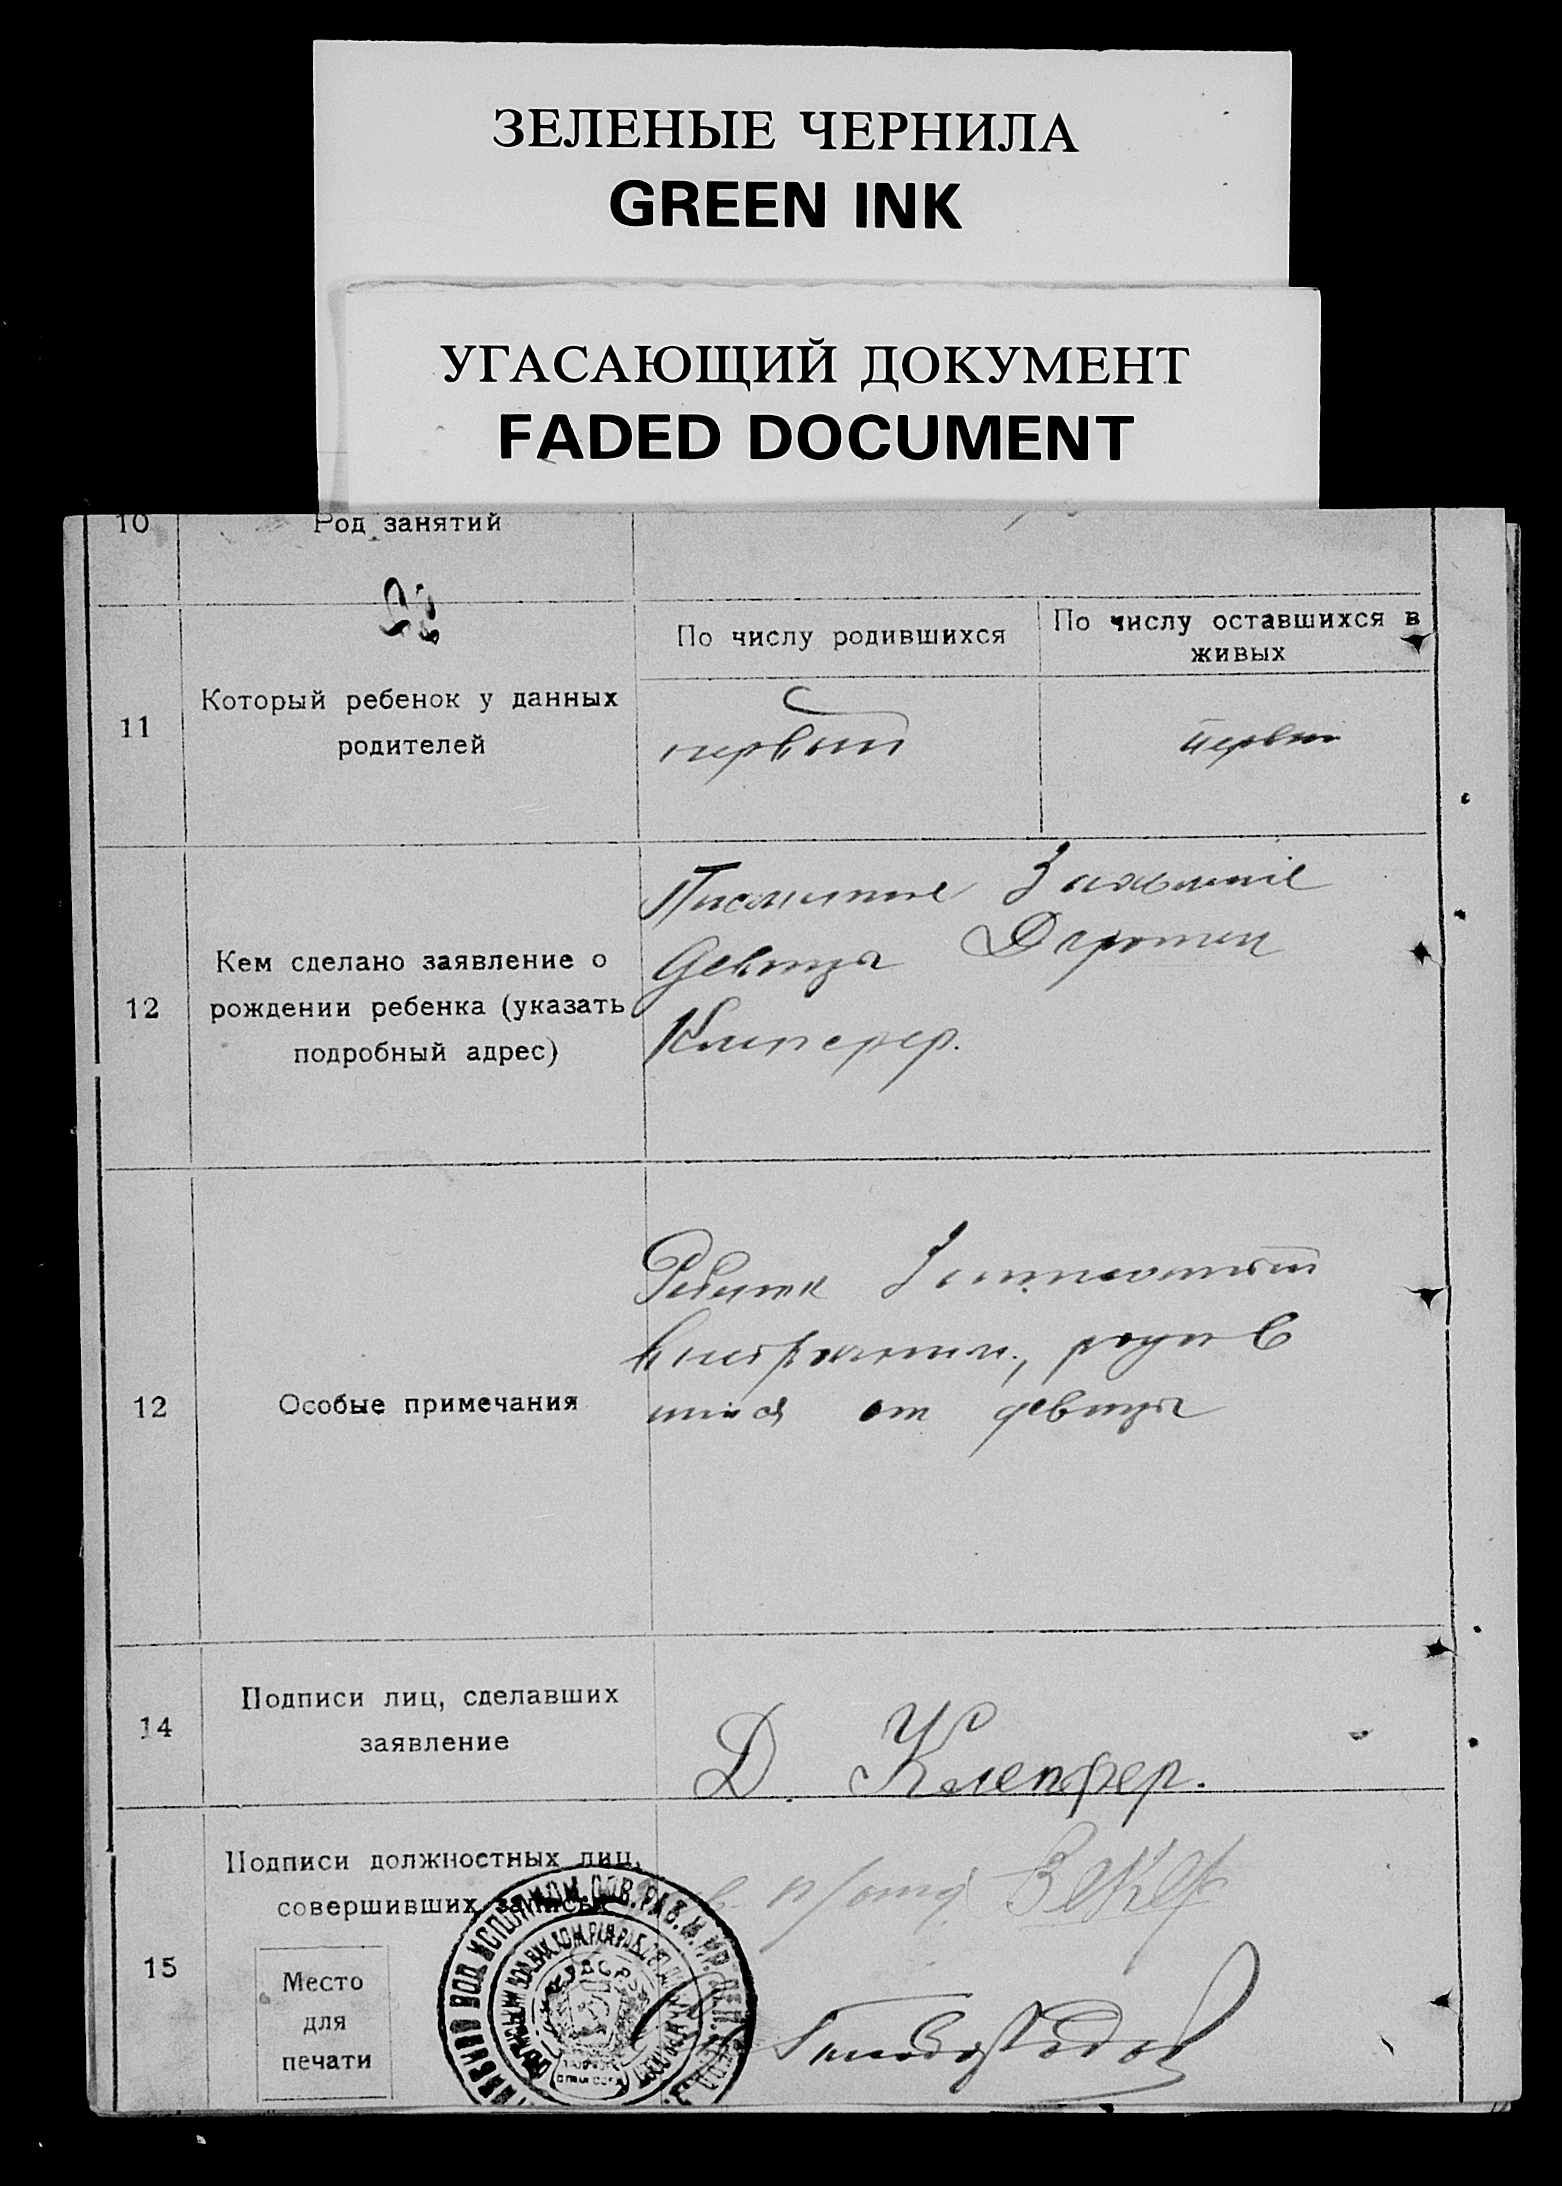 ЗЕЛЕНЫЕ ЧЕРНИЛА
GREEN INK
УГАСАЮЩИЙ ДОКУМЕНТ
FADED DOCUMENT
10 Род занятий
11 Который ребенок у данных
родителей
По числу родившихся
первый
По числу оставшихся в
живых
первый
12 Кем сделано заявление о
рождении ребенка (указать
подробный адрес)
Заявление
девицы Доротеи
Клепфер.
12 Особые примечания
Ребенок
родив
шийся от девицы
14 Подписи лиц, сделавших
заявление
Д. Клепфер.
15 Подписи должностных лиц,
совершивших запись
Место
для
печати